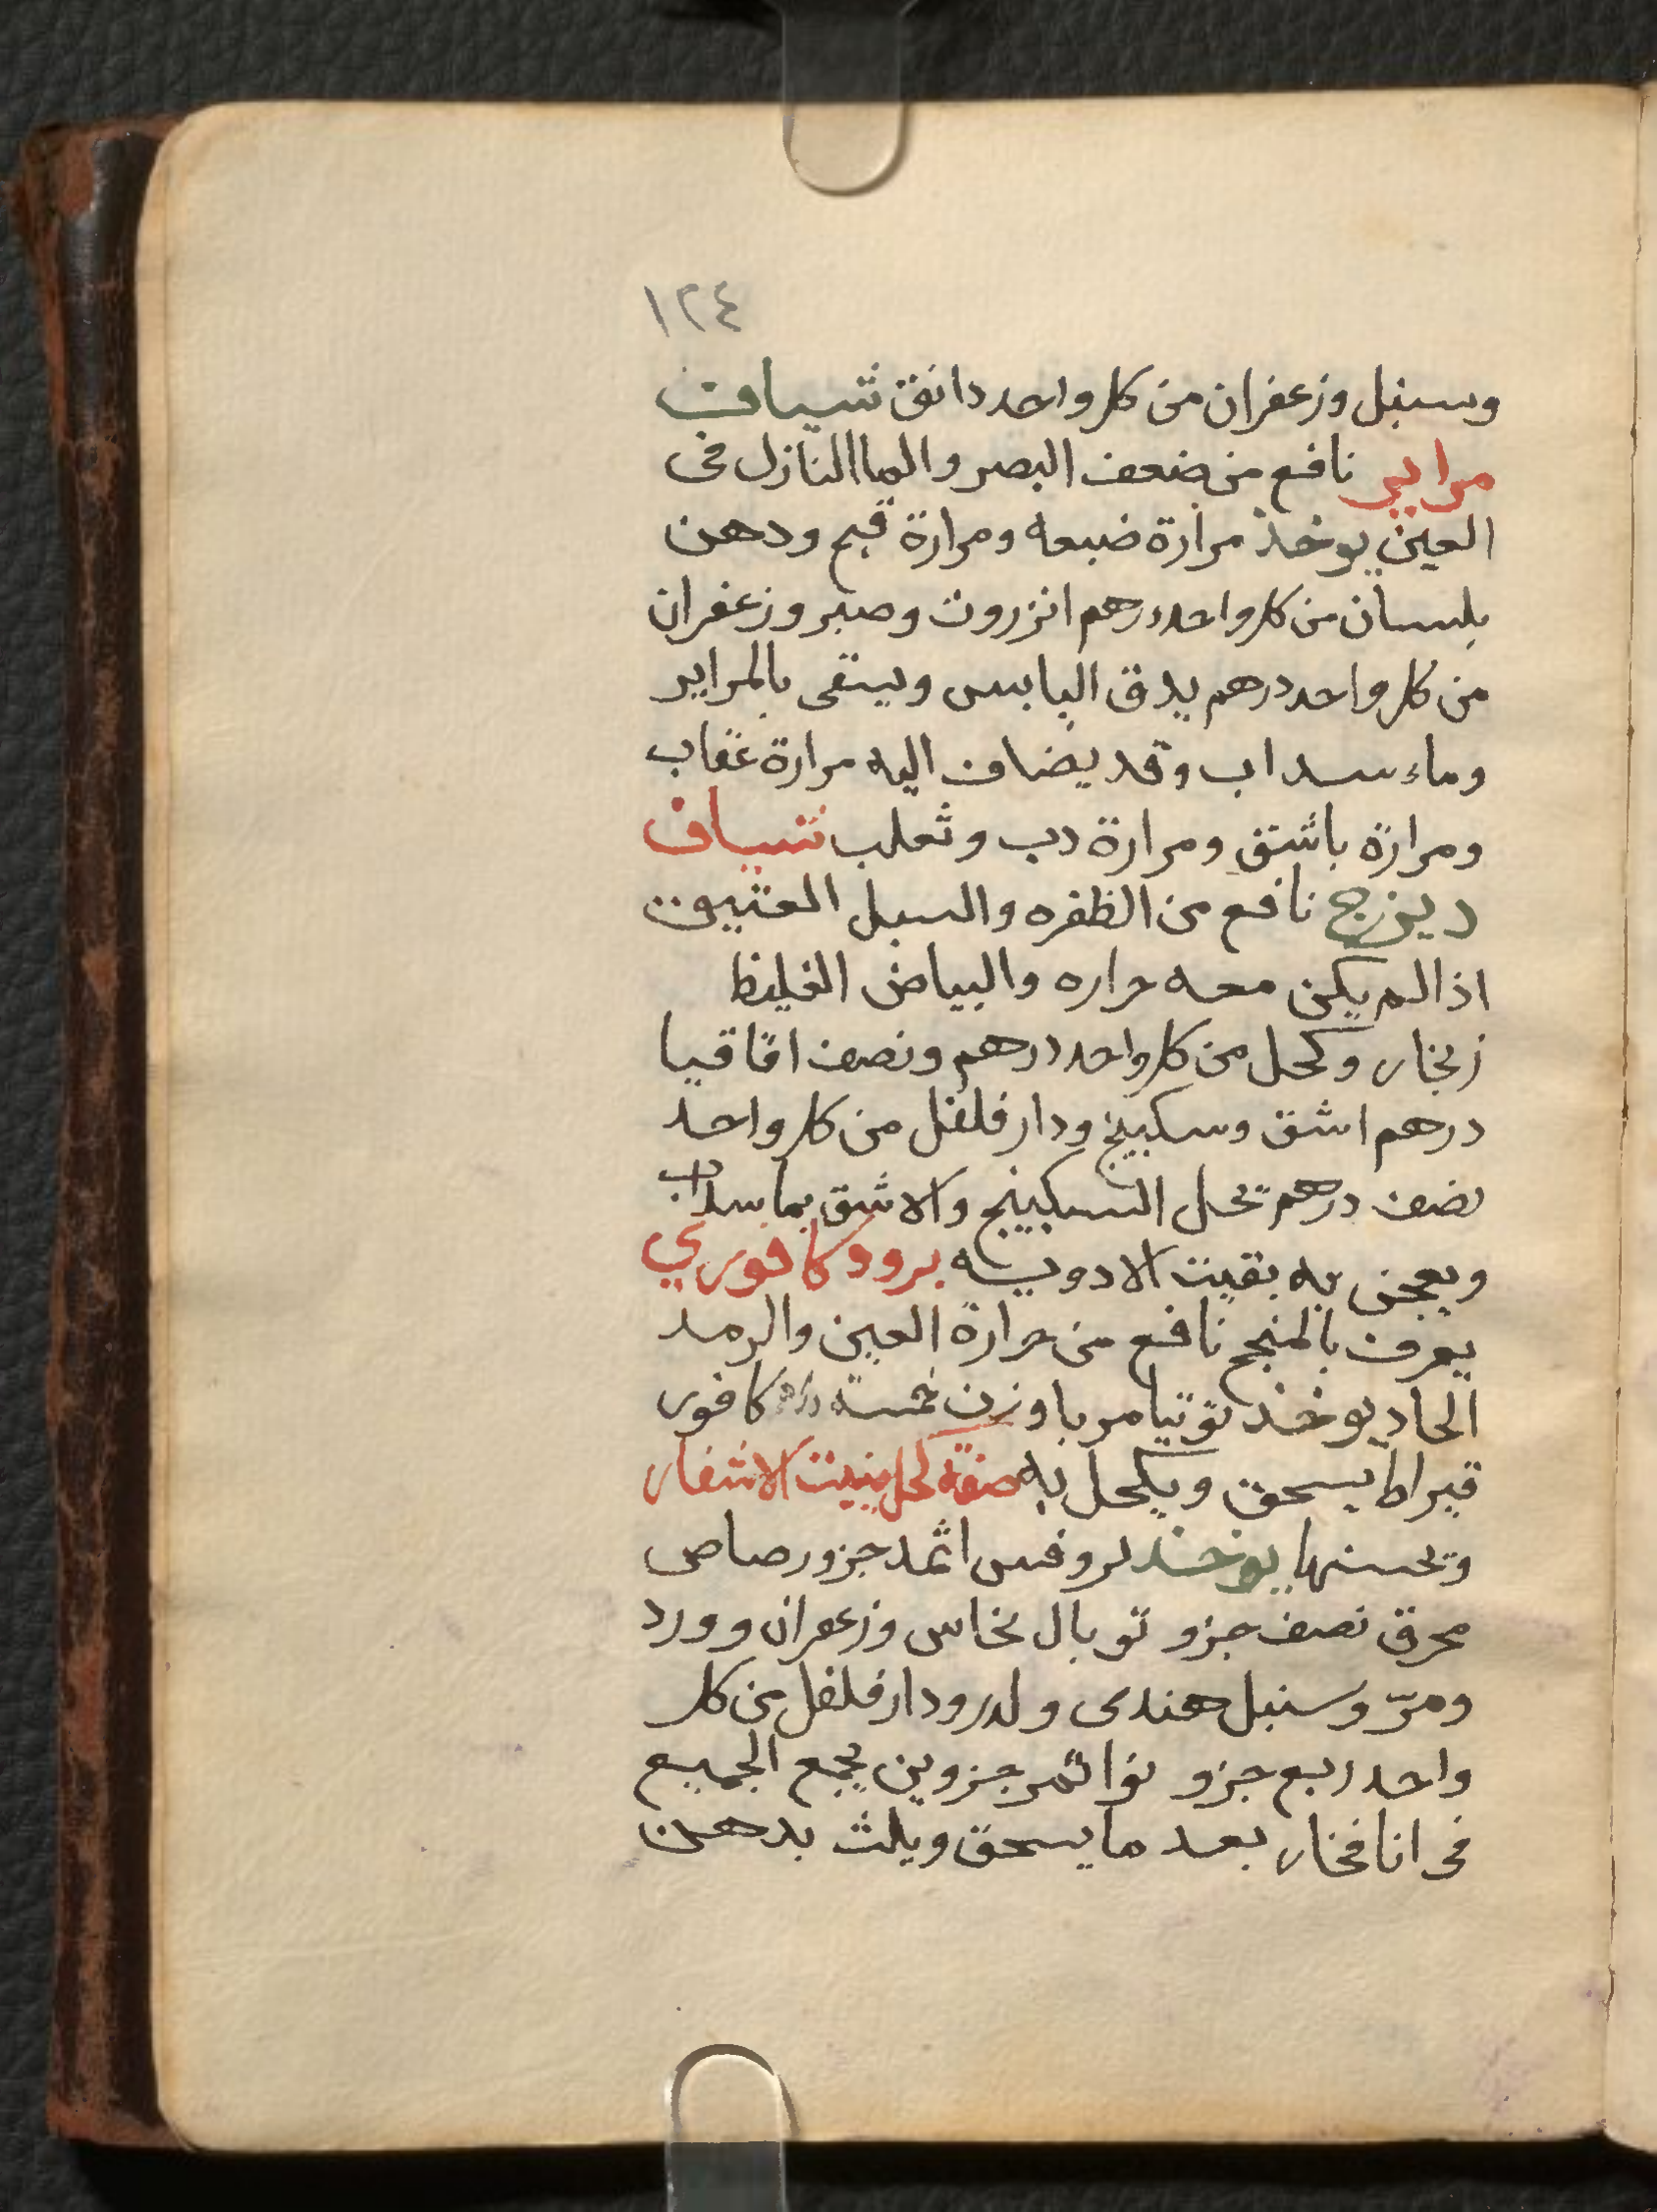 ١٢٤
وسنبل وزعفران من كل واحد دانق شياف
مراير نافع من ضعف البصر والما النازل فى
العين يوخذ مرارة ضبعه ومرارة قبج ودهن
بلسان من كل واحد درهم انزروت وصبر وزعفران
من كل واحد درهم يدق اليابس ويسقى بالمراير
وماء سداب وقد يضاف اليه مرارة عقاب
ومرارة باشق ومرارة دب وثعلب شياف
ديزج نافع من الظفره والسبل العتيق
اذا لم يكن معه حراره والبياض الغليظ
زنجار وكحل من كل واحد درهم ونصف اقاقيا
درهم اشق وسكبينج ودار فلفل من كل واحد
نصف درهم تحل السكبينج والاشق بما سداب
ويعجن به بقيت الادويه برود كافوري
يعرف بالمنجح نافع من حرارة العين والرمد
الحاد يوخذ توتيا مربا وزن خمسة دراهم كافور
قيراط يسحق ويكحل به صفة كحل ينبت الاشفار
وتحسنها يوخذ لروفس اثمد جزو رصاص
محرق نصف جزو توبال نحاس وزعفران وورد
ومرّ وسنبل هندى و دار فلفل من كل
واحد ربع جزو نوا تمر جزوين يجمع الجميع
فى انا فخار بعد ما يسحق ويلث بدهن